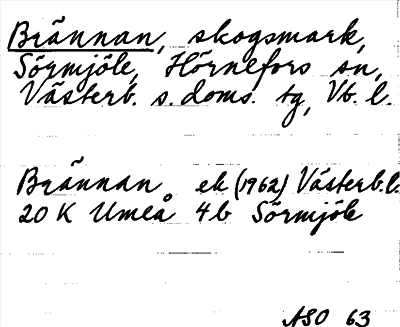 Brännan, skogsmark,
Sörmjöle, Hörnefors sn,
Västerb. s. doms. tg, Vb. l.
Brännan ek (1962) Västerb.l.
20 K Umeå 4b Sörmjöle
ASO 63